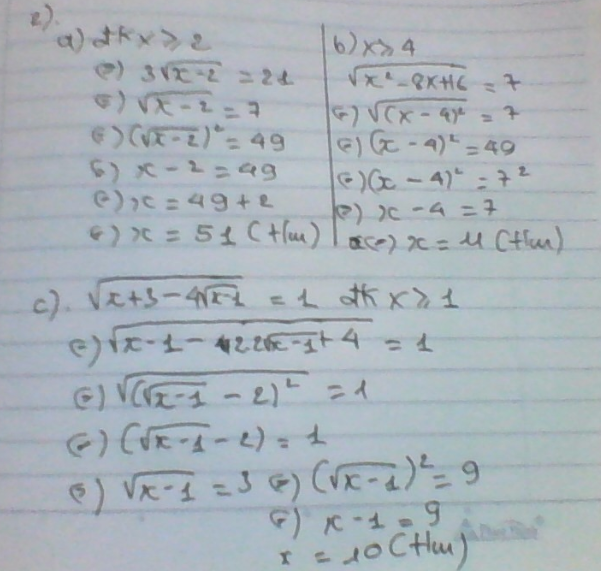 2).
a) đk x ≥ 2
⇔) 3√x-2 = 21
⇔) √x-2 = 7
⇔) (√x-2)² = 49
⇔) x - 2 = 49
⇔) x = 49 + 2
⇔) x = 51 (t/m)
b) x ≥ 4
√x² - 8x + 16 = 7
⇔) √(x - 4)² = 7
⇔) (x - 4)² = 49
⇔) (x - 4)² = 7²
⇔) x - 4 = 7
⇔) x = 11 (t/m)
c). √x+3-4√x-1 = 1 đk x ≥ 1
⇔) √x-1-22√x-1+4 = 1
⇔) √(√x-1 - 2)² = 1
⇔) (√x-1 - 2) = 1
⇔) √x-1 = 3 ⇔) (√x-1)² = 9
⇔) x - 1 = 9
x = 10 (t/m)